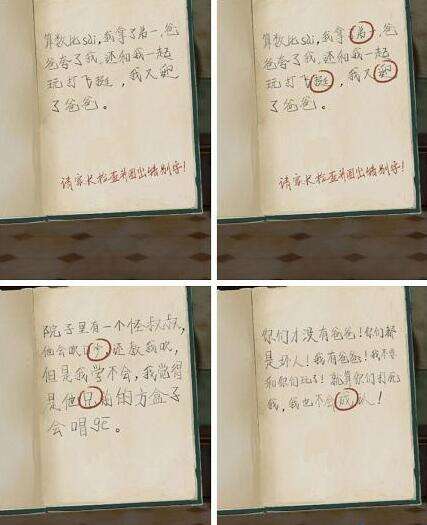 算数比sài,我拿了弟一,爸
爸夸了我,还和我一起
玩打飞艇,我
了爸爸。
请家长检查并圈出错别字!
算数比sài,我拿了弟一,爸
爸夸了我,还和我一起
玩打飞艇,我
了爸爸。
请家长检查并圈出错别字!
院子里有一个怪叔叔,
他会吹口今,还教我吹,
但是我学不会,我觉得
是他兄前的方盒子
会唱gē。
你们才没有爸爸!你们都
是坏人!我有爸爸!我不要
和你们玩了!就算你们打死
我,我也不会成认!